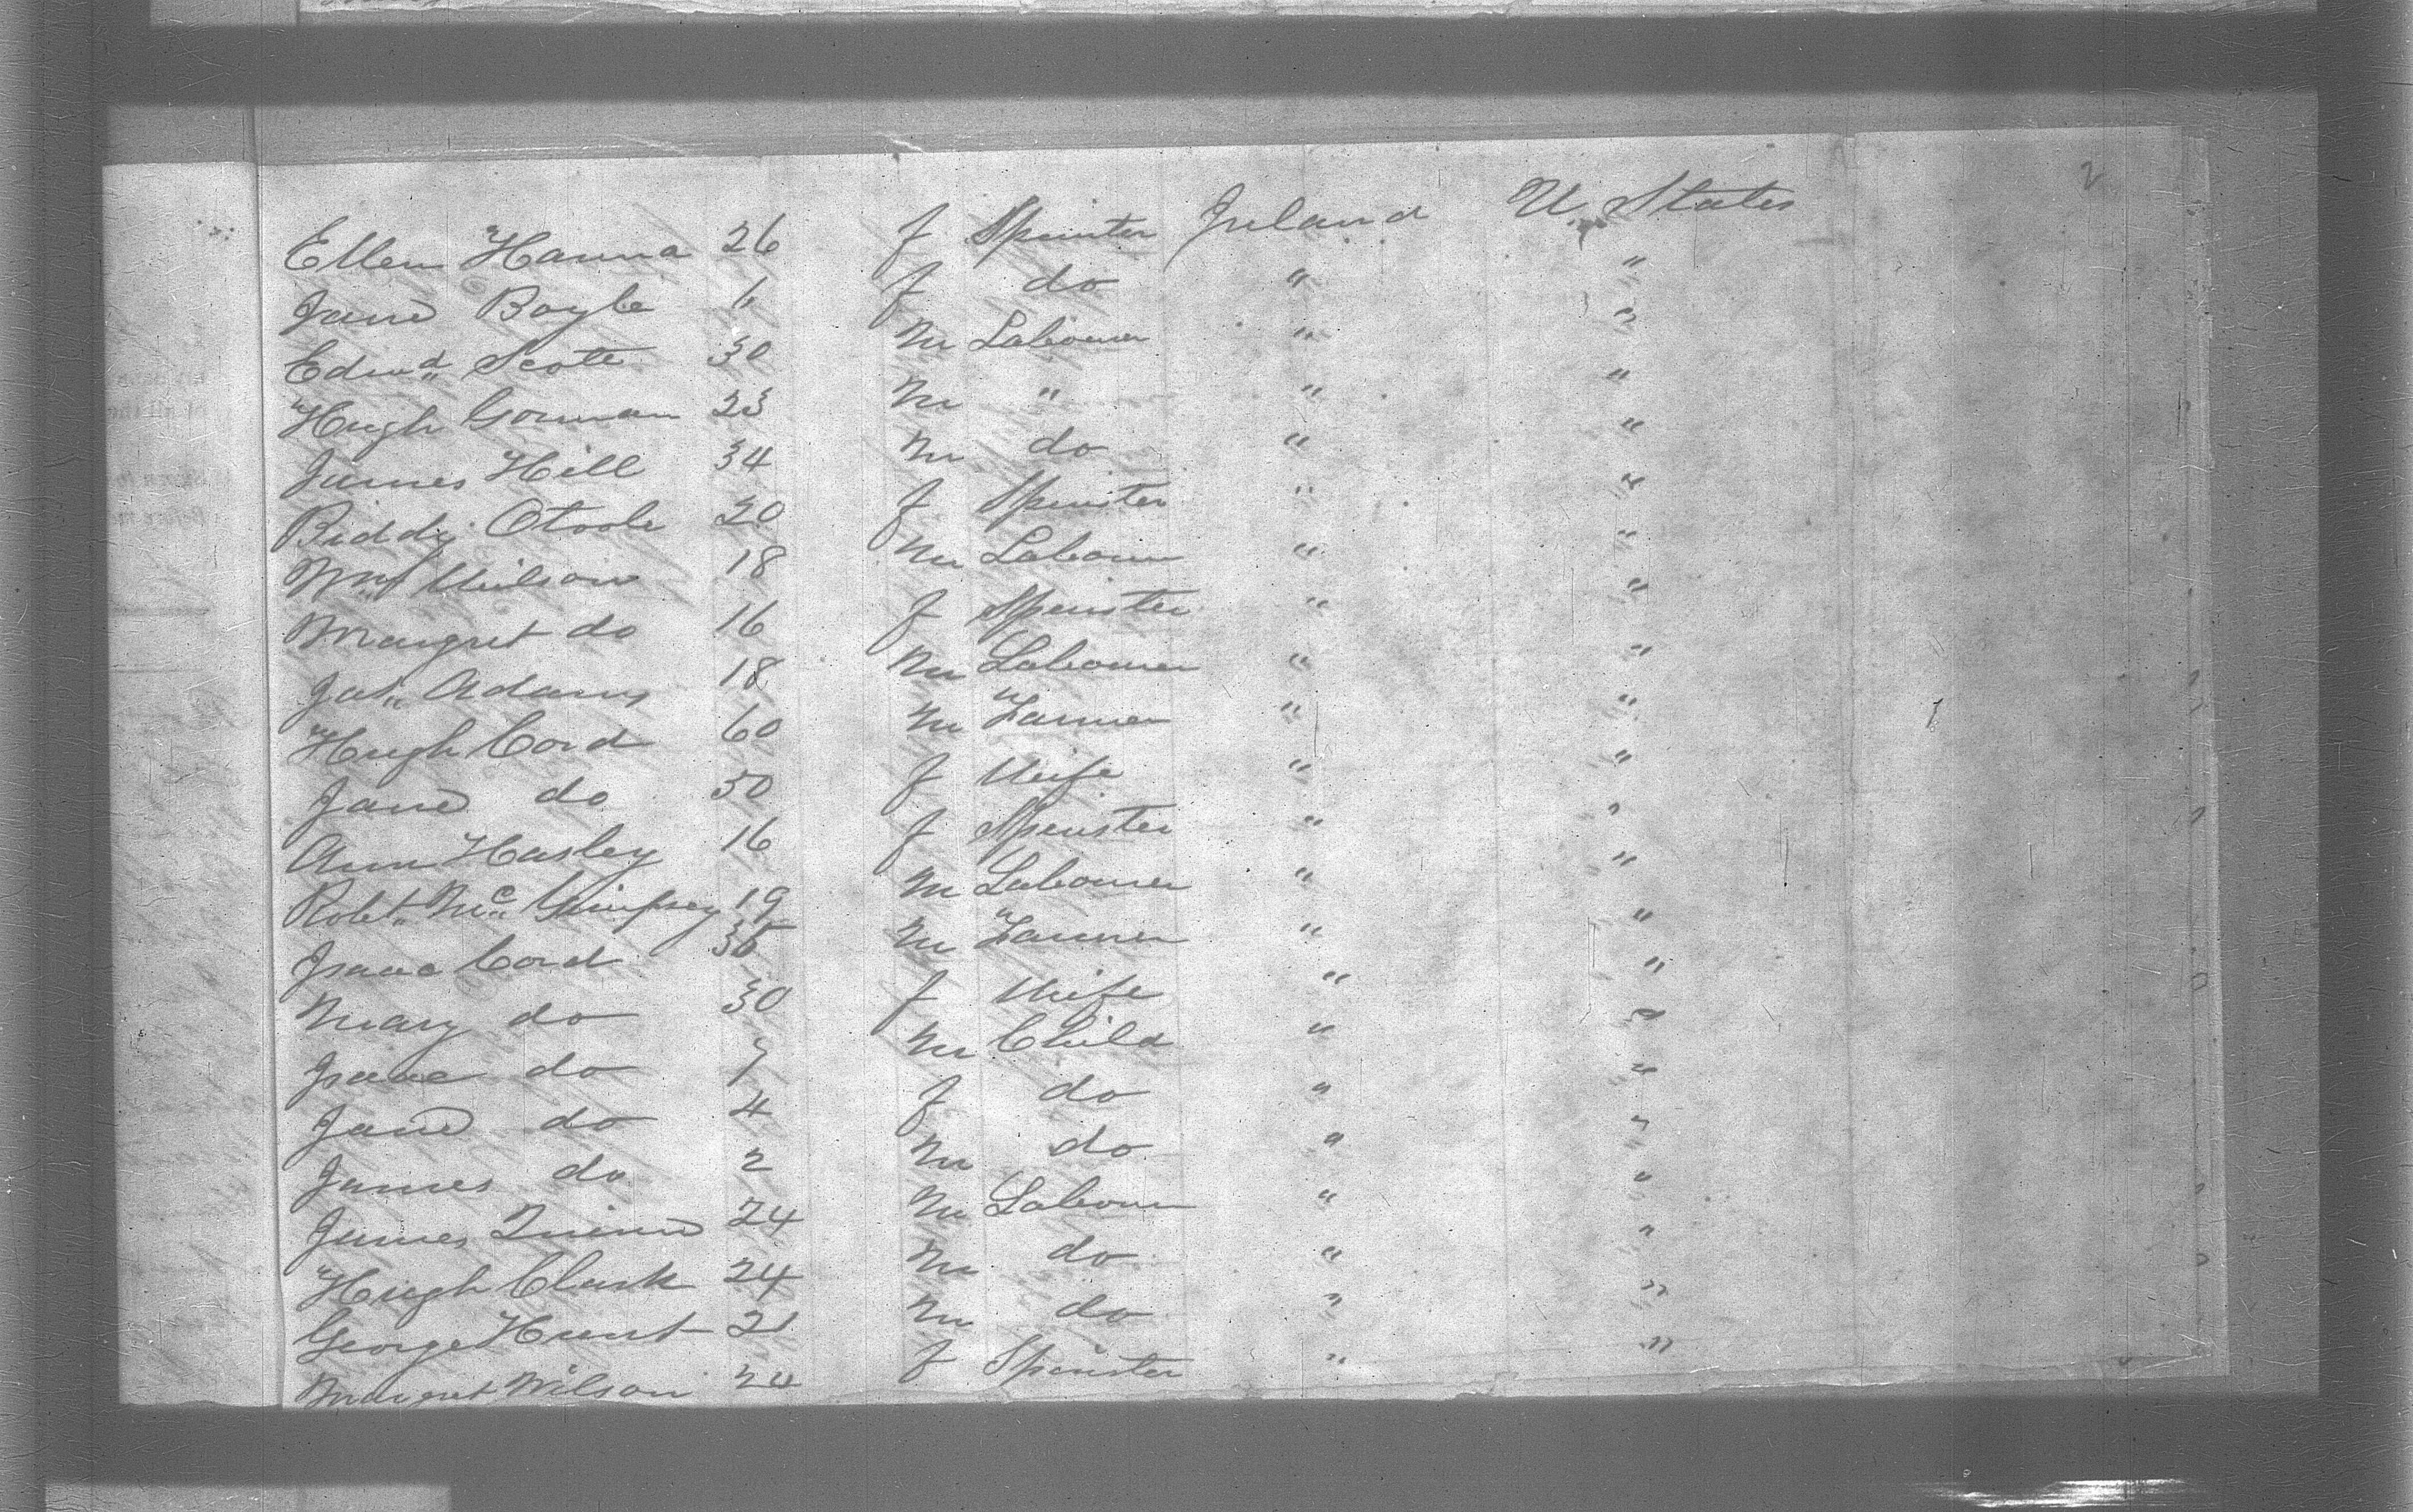 2
Ellen Hanna 26 f Spinster Ireland U. States
Jane Boyle " f do " "
Edwd Scott 30 m Labourer " "
Hugh Gorman 23 m " " "
James Hill 34 m do " "
Biddy Otoole 20 f Spinster " "
Wm Wilson 18 m Labourer " "
Margret do 16 f Spinster " "
Jas Adams 18 m Labourer " "
Hugh Cord 60 m Farmer " "
Jane do 50 f Wife " "
Ann Hasley 16 f Spinster " "
Robt Mc Gimpsey 19 m Labourer " "
Isaac Cord 35 m Farmer " "
Mary do 30 f Wife " "
Isaac do 7 m Child " "
Jane do 4 f do " "
James do 2 m do " "
James Quinn 24 m Labourer " "
Hugh Clark 24 m do " "
George Hunt 21 m do " "
Margret Wilson 24 f Spinster " "